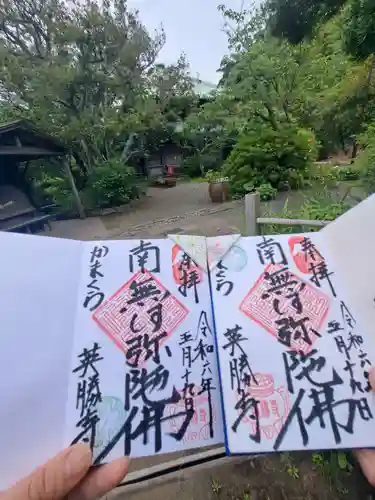 奉拝
令和六年
五月十九日
南無阿弥陀佛
かまくら
英勝寺
奉拝
令和六年
五月十九日
南無阿弥陀佛
かまくら
英勝寺